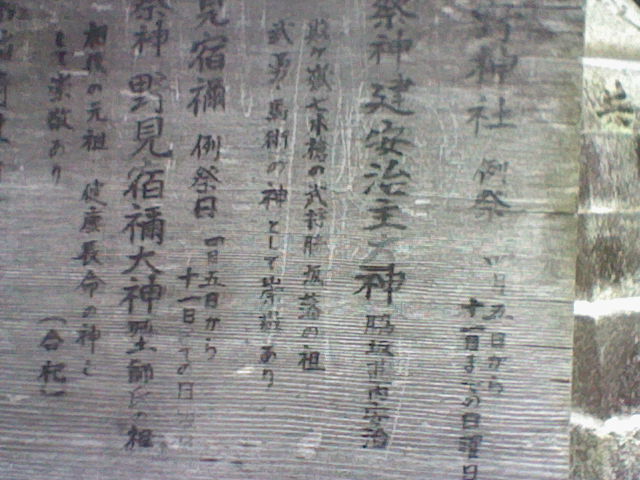 野神社 例祭 四月五日から
十一日までの日曜日
祭神 建安治主大神 脇坂甚内安治
賤ヶ嶽七本槍の武将脇坂藩の祖
武勇・馬術の神として崇敬あり
見宿禰 例祭日 四月五日から
十一日までの日
祭神 野見宿禰大神 野土師氏の祖
相撲の元祖 健康長命の神と
して崇敬あり
(合祀)